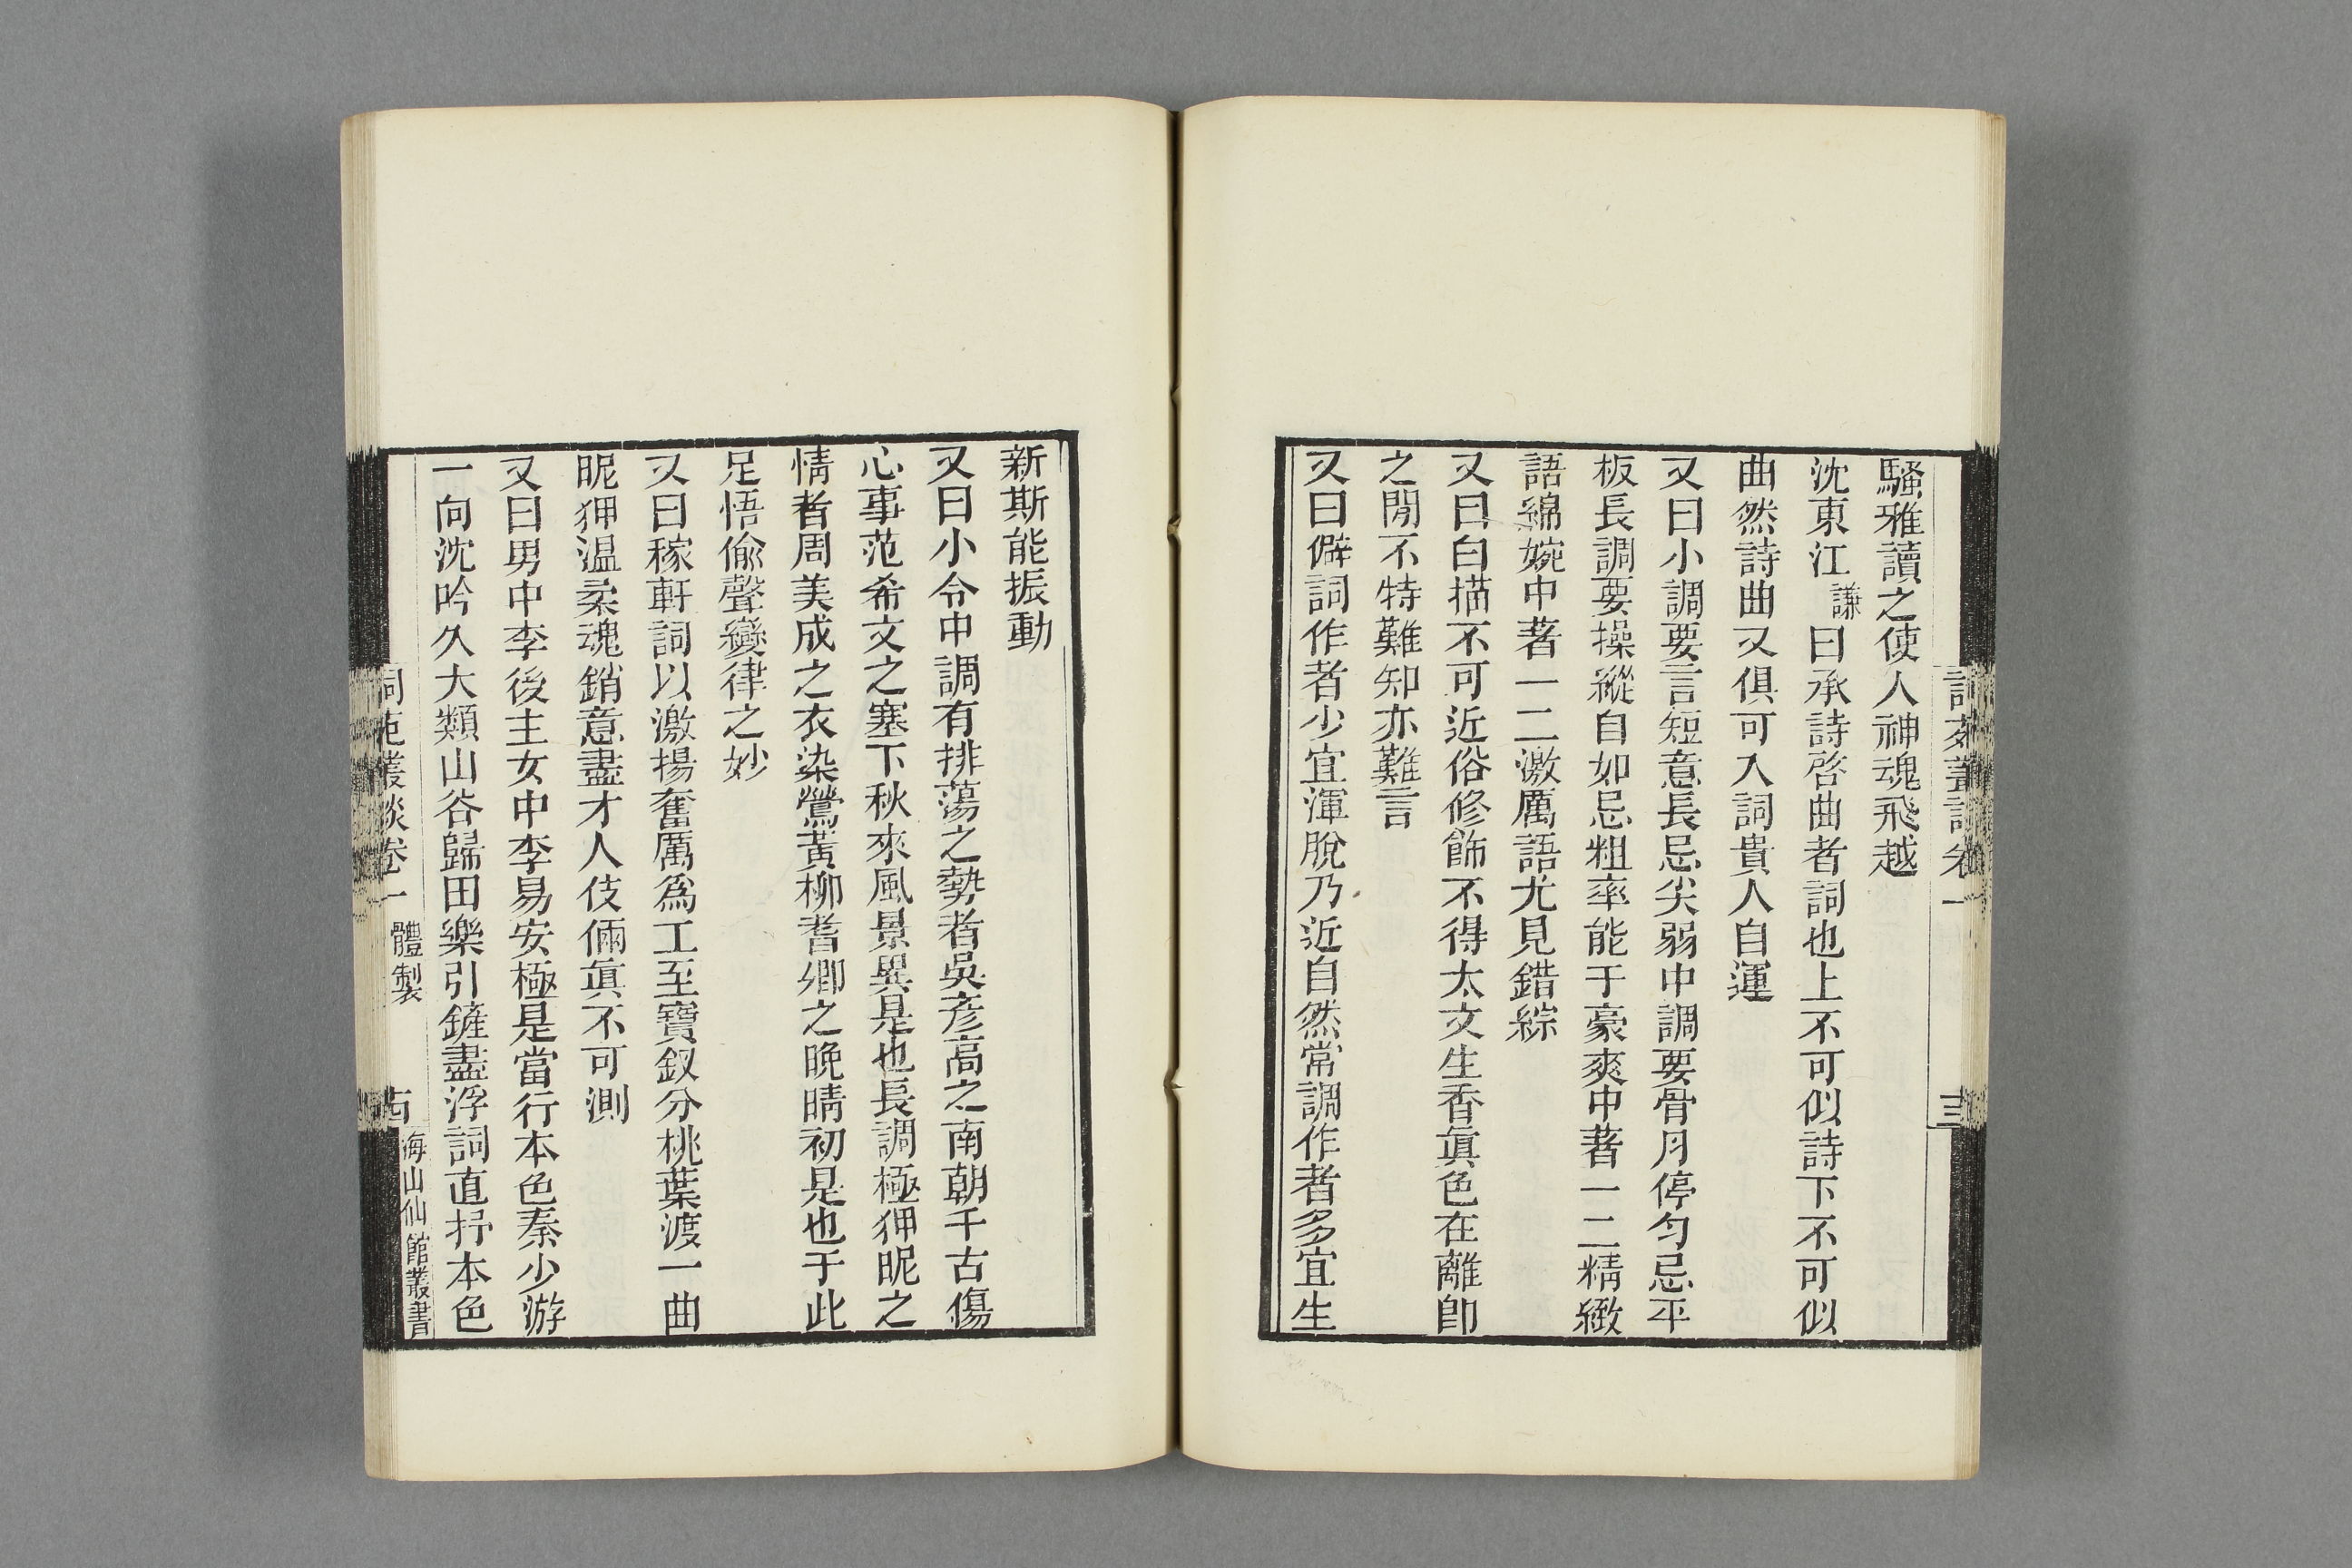 騷雅讀之使人神魂飛越
沈東江謙曰承詩啓曲者詞也上不可似詩下不可似
曲然詩曲又俱可入詞貴人自運
又曰小調要言短意長忌尖弱中調要骨肉停勻忌平
板長調要操縱自如忌粗率能于豪爽中著一二精緻
語綿婉中著一二激厲語尤見錯綜
又曰白描不可近俗修飾不得太文生香眞色在離卽
之閒不特難知亦難言
又曰僻詞作者少宜渾脫乃近自然常調作者多宜生
新斯能振動
又曰小令中調有排蕩之勢者吳彥高之南朝千古傷
心事范希文之塞下秋來風景異是也長調極狎昵之
情者周美成之衣染鶯黃柳耆卿之晚晴初是也于此
足悟偸聲變律之妙
又曰稼軒詞以激揚奮厲爲工至寶釵分桃葉渡一曲
昵狎温柔魂銷意盡才人伎倆眞不可測
又曰男中李後主女中李易安極是當行本色秦少游
一向沈吟久大類山谷歸田樂引鏟盡浮詞直抒本色
詞苑叢談卷一
體製
海山仙館叢書